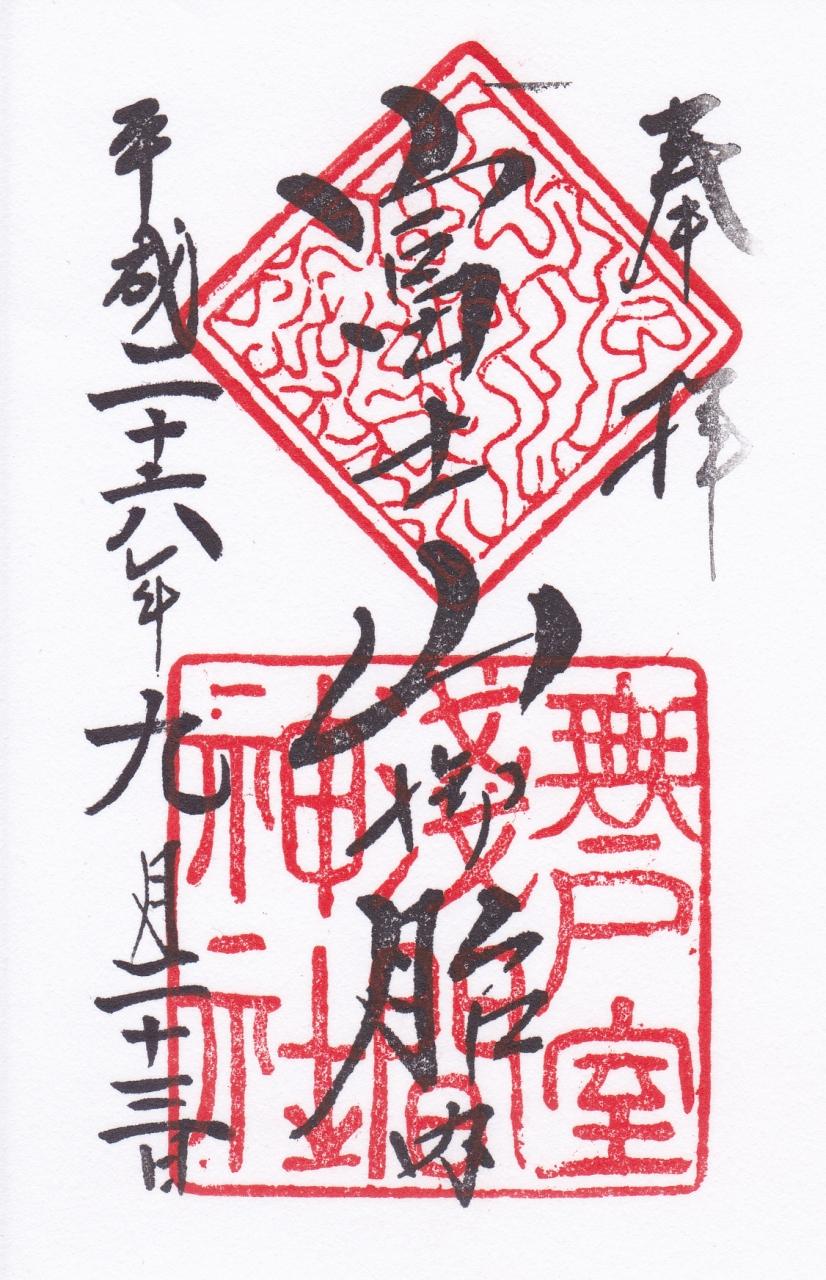 奉拝
富士山御胎内
平成二十六年九月二十三日
無戸室
淺間
神社